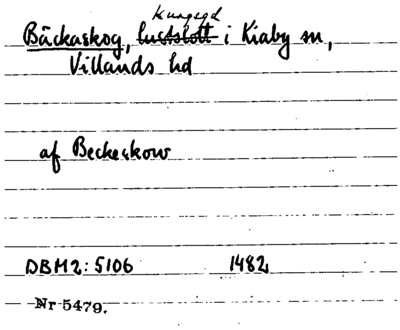 kungsgd
Bäckaskog, lustslott i Kiaby sn,
Villands hd
af Beckeskow
DBM2: 5106 1482
Nr 5479.